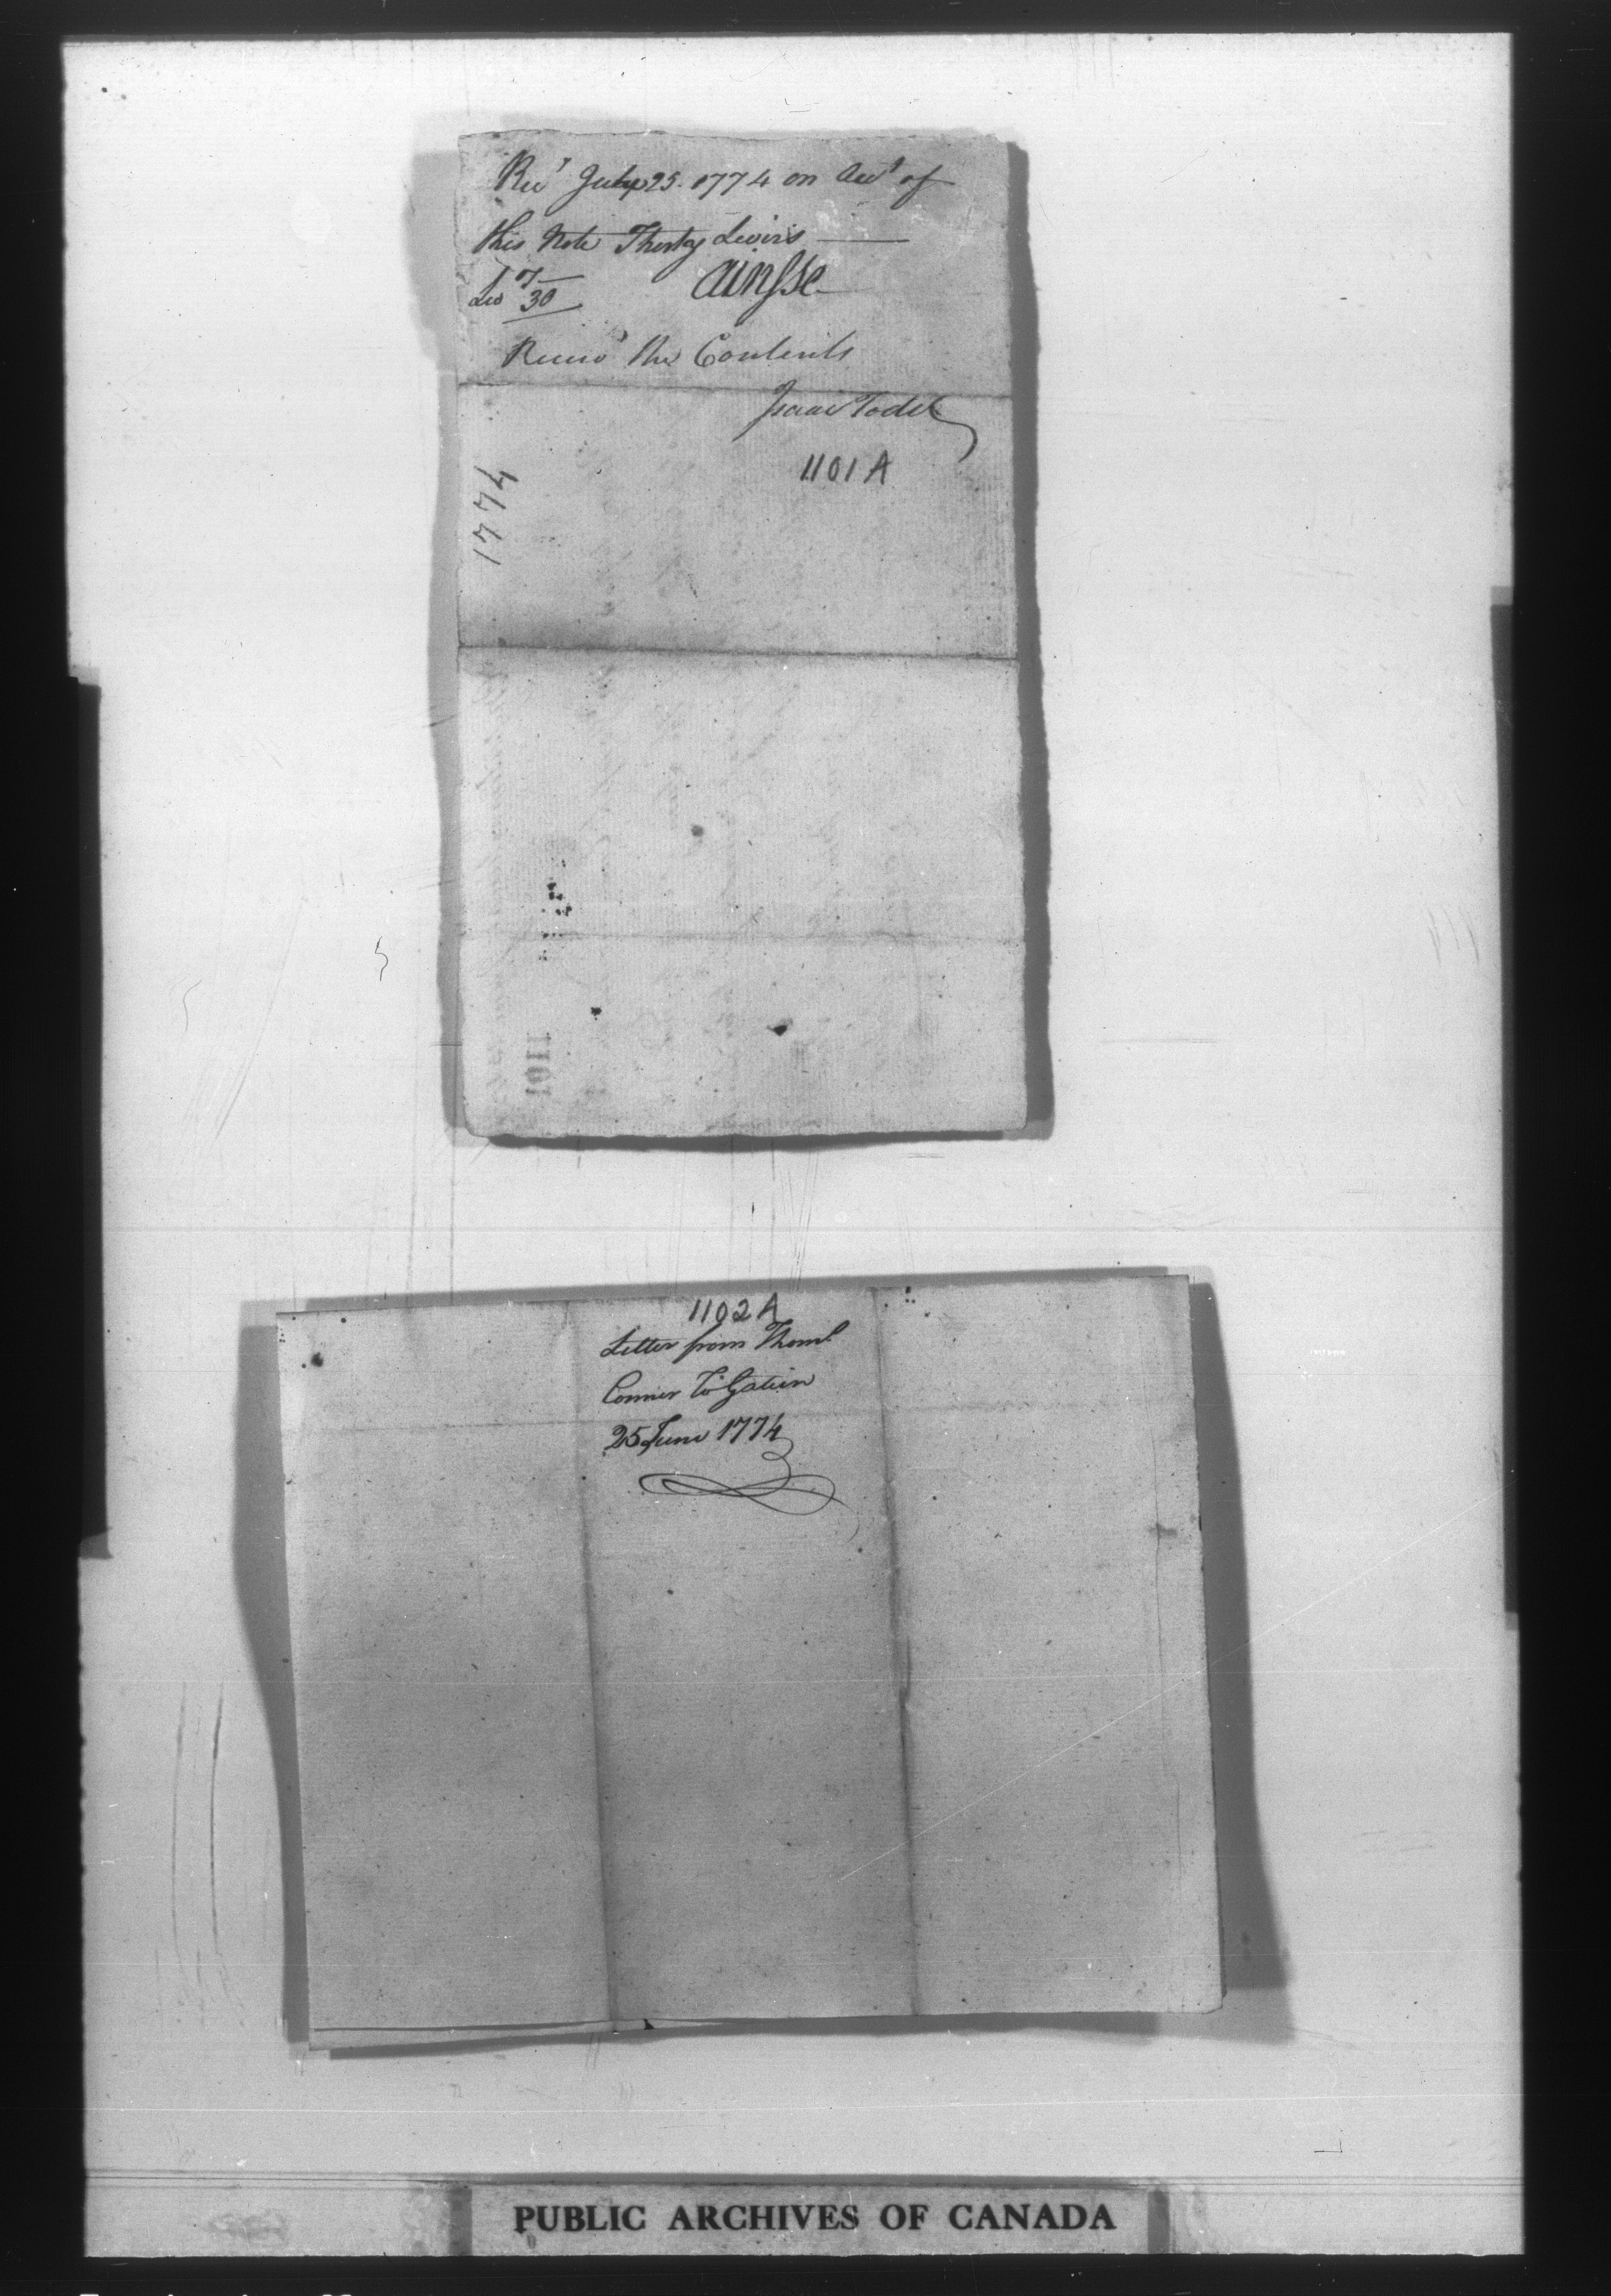 Recd July 25. 1774 on Acct of
this Note Thirty Livirs
Liv rs 30
ainsse
Receivd the Contents
Isaac Todd
1101 A
1774
1101
1102 A
Letter from Thoms
Conner To Gatien
25 June 1774
PUBLIC ARCHIVES OF CANADA